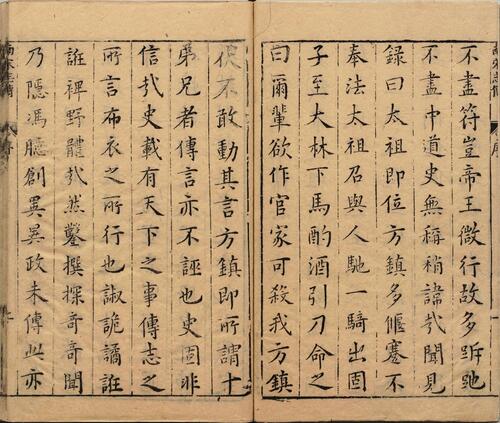 不盡符豈帝王微行故多跅弛
不盡中道史無稱稍諱哉聞見
錄曰太祖即位方鎮多偃蹇不
奉法太祖召與人馳一騎出固
子至大林下馬酌酒引刀命之
曰爾輩欲作官家可殺我方鎮
伏不敢動其言方鎮即所謂十
弟兄者傳言亦不誣也史固非
信哉史載有天下之事傳志之
所言布衣之所行也淑詭譎誑
誑裨野體哉然鑿撰探奇奇聞
乃隱馮臆創異吳政未傳此亦